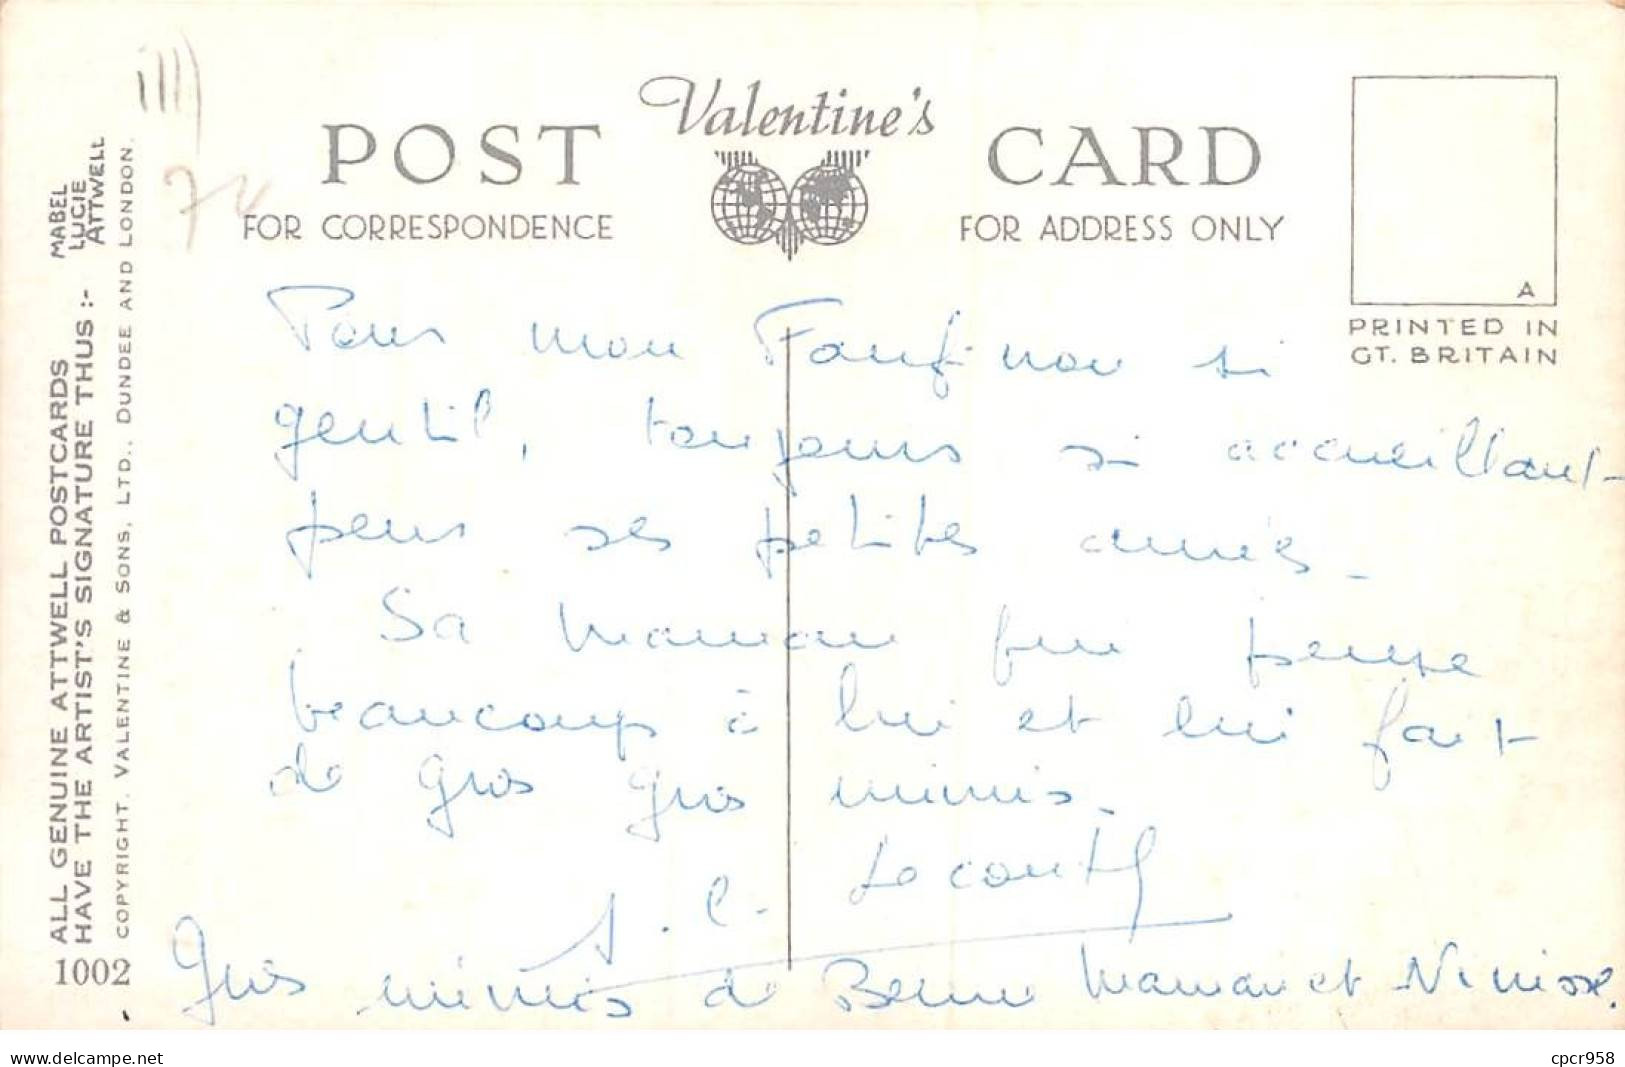 Valentine's
POST CARD
FOR CORRESPONDENCE
FOR ADDRESS ONLY
A
PRINTED IN
GT. BRITAIN
ALL GENUINE ATTWELL POSTCARDS
HAVE THE ARTIST'S SIGNATURE THUS :-
MABEL
LUCIE
ATTWELL
COPYRIGHT. VALENTINE & SONS, LTD., DUNDEE AND LONDON.
1002
ill)
Pour mon si
gentil, toujours si accueillant
pour ses petites amies.
Sa maman qui pense
beaucoup à lui et lui fait
de gros gros mimis.
A. C.
Gros mimis de maman et
www.delcampe.net
cpcr958